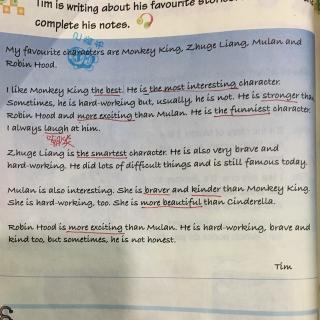 Tim is writing about his favourite stories.
complete his notes.
My favourite characters are Monkey King, Zhuge Liang, Mulan and
Robin Hood.
I like Monkey King the best. He is the most interesting character.
Sometimes, he is hard-working but, usually, he is not. He is stronger than
Robin Hood and more exciting than Mulan. He is the funniest character.
I always laugh at him.
Zhuge Liang is the smartest character. He is also very brave and
hard-working. He did lots of difficult things and is still famous today.
Mulan is also interesting. She is braver and kinder than Monkey King.
She is hard-working, too. She is more beautiful than Cinderella.
Robin Hood is more exciting than Mulan. He is hard-working, brave and
kind too, but sometimes, he is not honest.
Tim